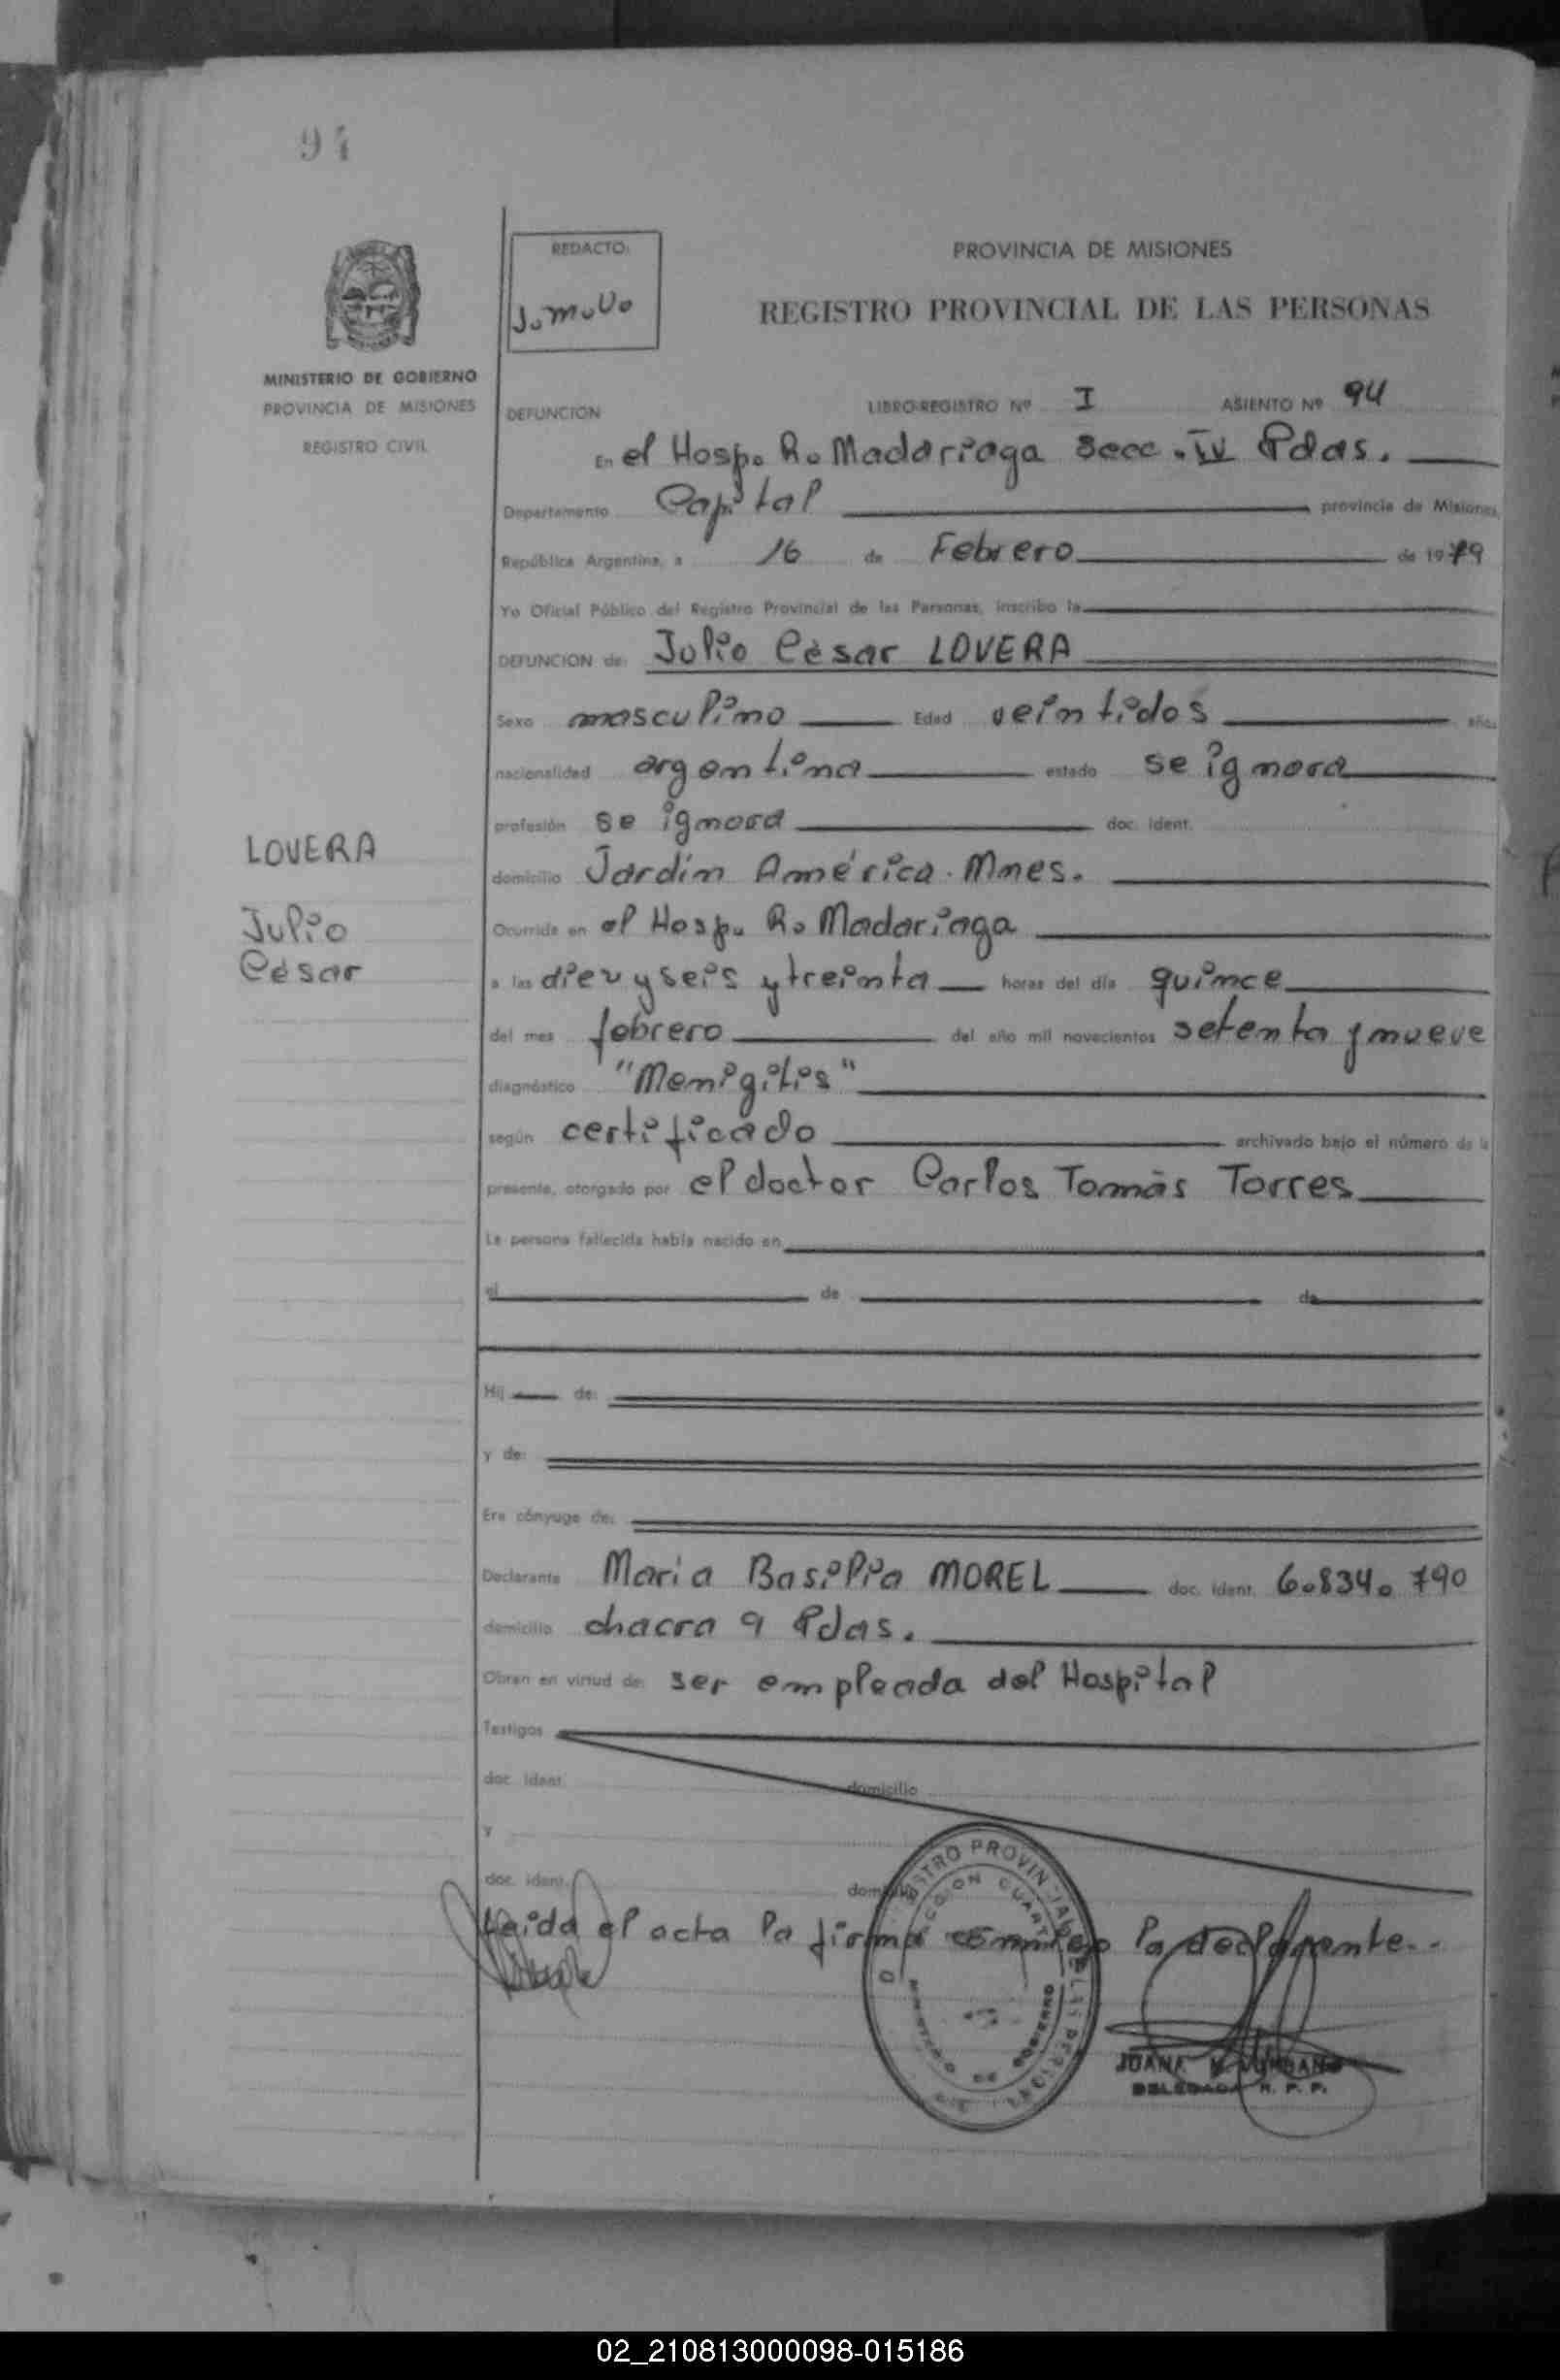 94
REDACTO:
PROVINCIA DE MISIONES
REGISTRO PROVINCIAL DE LAS PERSONAS
MINISTERIO DE GOBIERNO
PROVINCIA DE MISIONES
REGISTRO CIVIL
DEFUNCION LIBRO-REGISTRO Nº I ASIENTO Nº 94
En el Hosp. R. Madariaga Secc. IV Pdas.
Departamento Capital provincia de Misiones,
República Argentina, a 16 de Febrero de 1979
Yo Oficial Público del Registro Provincial de las Personas, inscribo la
DEFUNCION de: Julio Cèsar LOVERA
Sexo masculino Edad veintidos años
nacionalidad argentina estado se ignora
profesión se ignora doc. ident.
LOVERA
domicilio Jardín América. Mnes.
Julio
César
Ocurrida en el Hosp. R. Madariaga
a las diez y seis y treinta horas del día quince
del mes febrero del año mil novecientos setenta y nueve
diagnóstico "Menigitis"
según certificado archivado bajo el número de la
presente, otorgado por el doctor Carlos Tomás Torres
La persona fallecida había nacido en
el de de
Hij de:
y de:
Era cónyuge de:
Declarante Maria Basilia MOREL doc. ident. 6.834.790
domicilio chacra 9 Pdas.
Obran en virtud de: ser empleada del Hospital
Testigos
doc. ident. domicilio
y
doc. ident. domicilio
Leida el acta la firma conmigo la declarante..
JUANA
DELEGADA R. P. P.
02_210813000098-015186